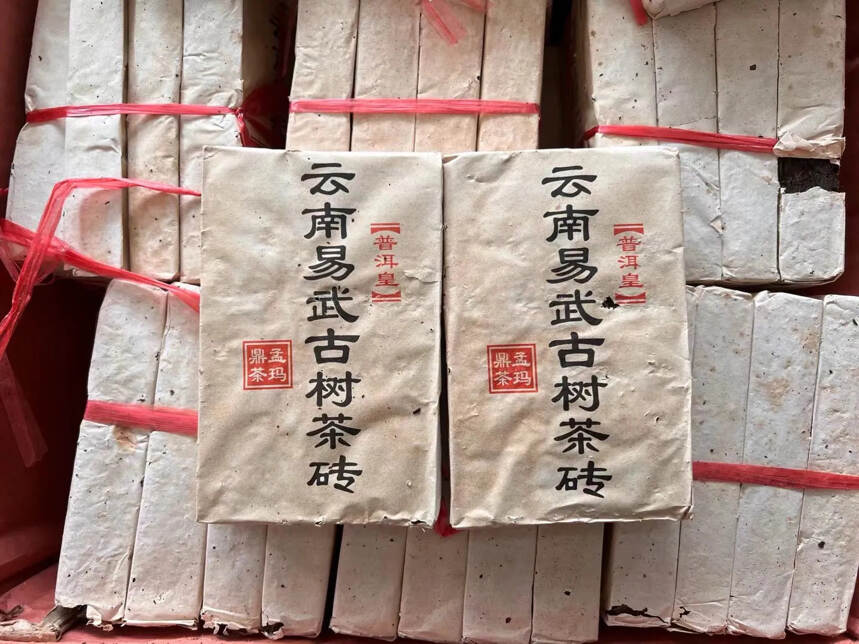 【普洱皇】
云南易武古树茶砖
孟玛
鼎茶
【普洱皇】
云南易武古树茶砖
孟玛
鼎茶